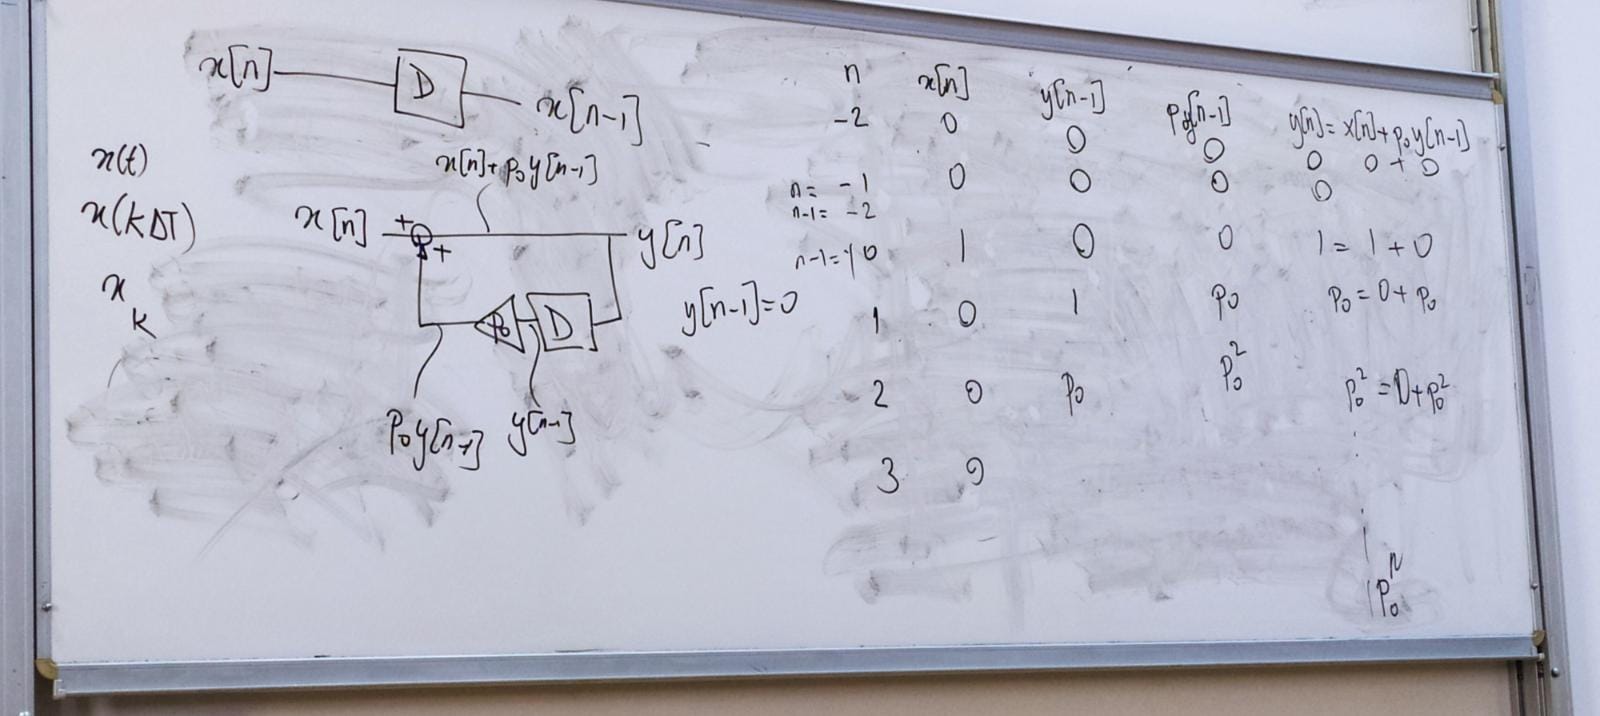 x[n] D x[n-1]
x(t)
x(kΔT)
x
k
x[n]+p₀y[n-1]
x[n] + + y[n]
p₀ D
y[n-1]=0
p₀y[n-1] y[n-1]
n x[n] y[n-1] p₀y[n-1] y[n]=x[n]+p₀y[n-1]
-2 0 0 0 0 0+0
n= -1 0 0 0 0
n-1= -2
n-1=-1 0 1 0 0 1=1+0
1 0 1 p₀ p₀=0+p₀
2 0 p₀ p₀² p₀²=0+p₀²
3 0
p₀ⁿ